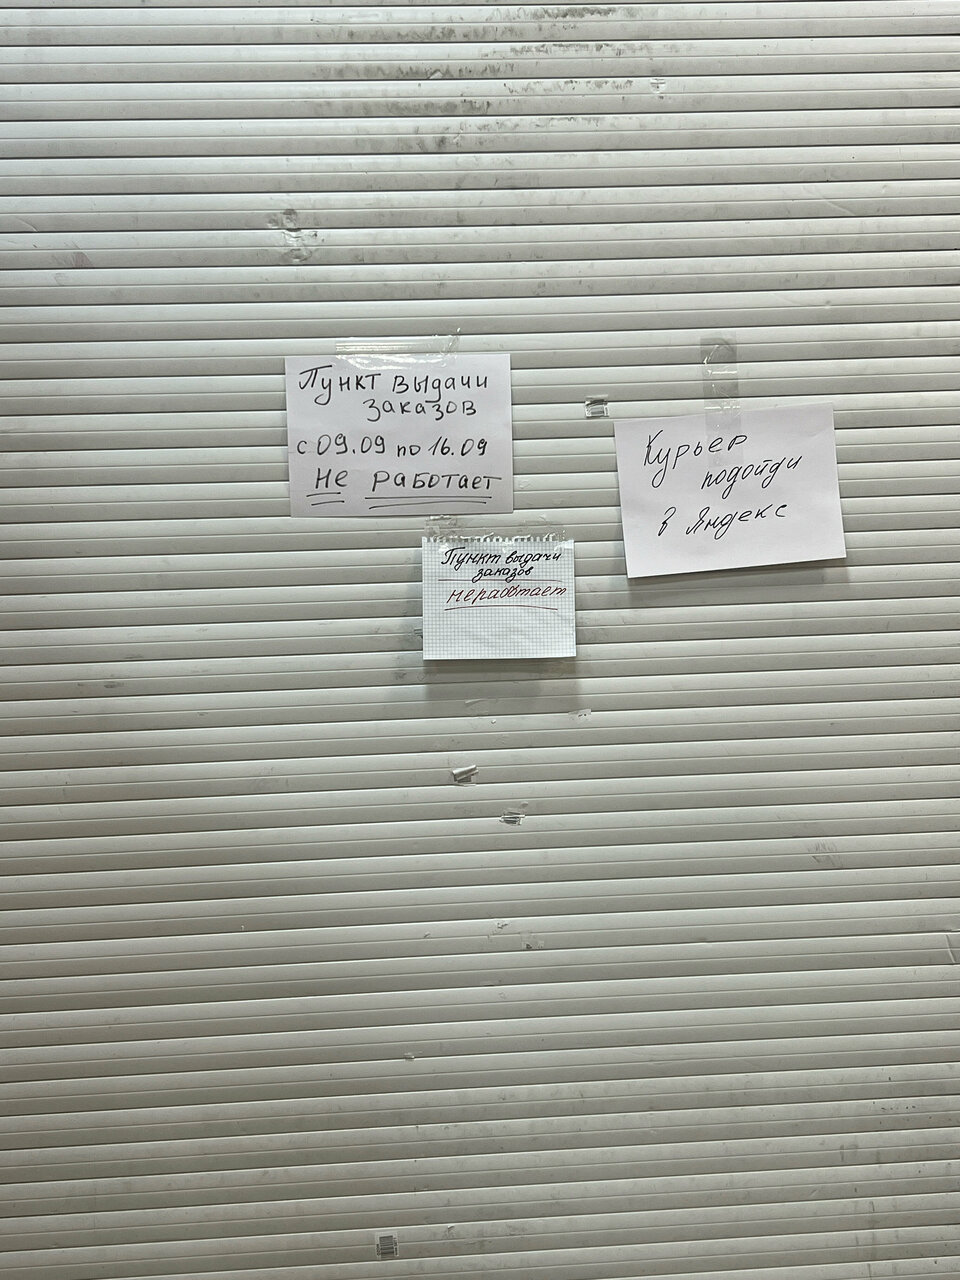 Пункт выдачи
заказов
с 09.09 по 16.09
не работает
Курьер
подойди
в Яндекс
Пункт выдачи
заказов
неработает